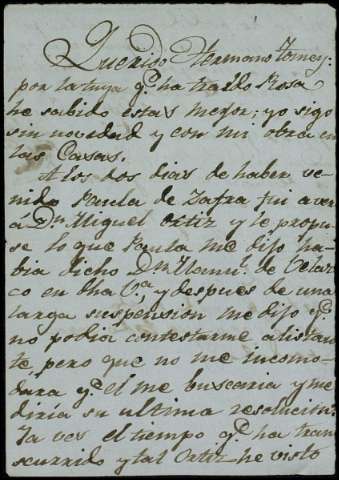 Querido Hermano Tomey:
por la tuya q.e ha traido Rosa
he sabido estas mejor; yo sigo
sin novedad y con mi obra en
las Casas.
A los dos dias de haber ve-
nido Paula de Zafra fui a ver
á Dn Miguel Ortiz y le propu-
se lo que Paula me dijo ha-
bia dicho Dn Manu.l de Velaz
co en dha C.a y despues de una
larga suspension me dijo q.e
no podia contestarme al istan-
te, pero que no me incomo-
dara q.e el me buscaria y me
diria su ultima resolución.
Ya ves el tiempo q.e ha tran
scurrido y tal Ortiz he visto